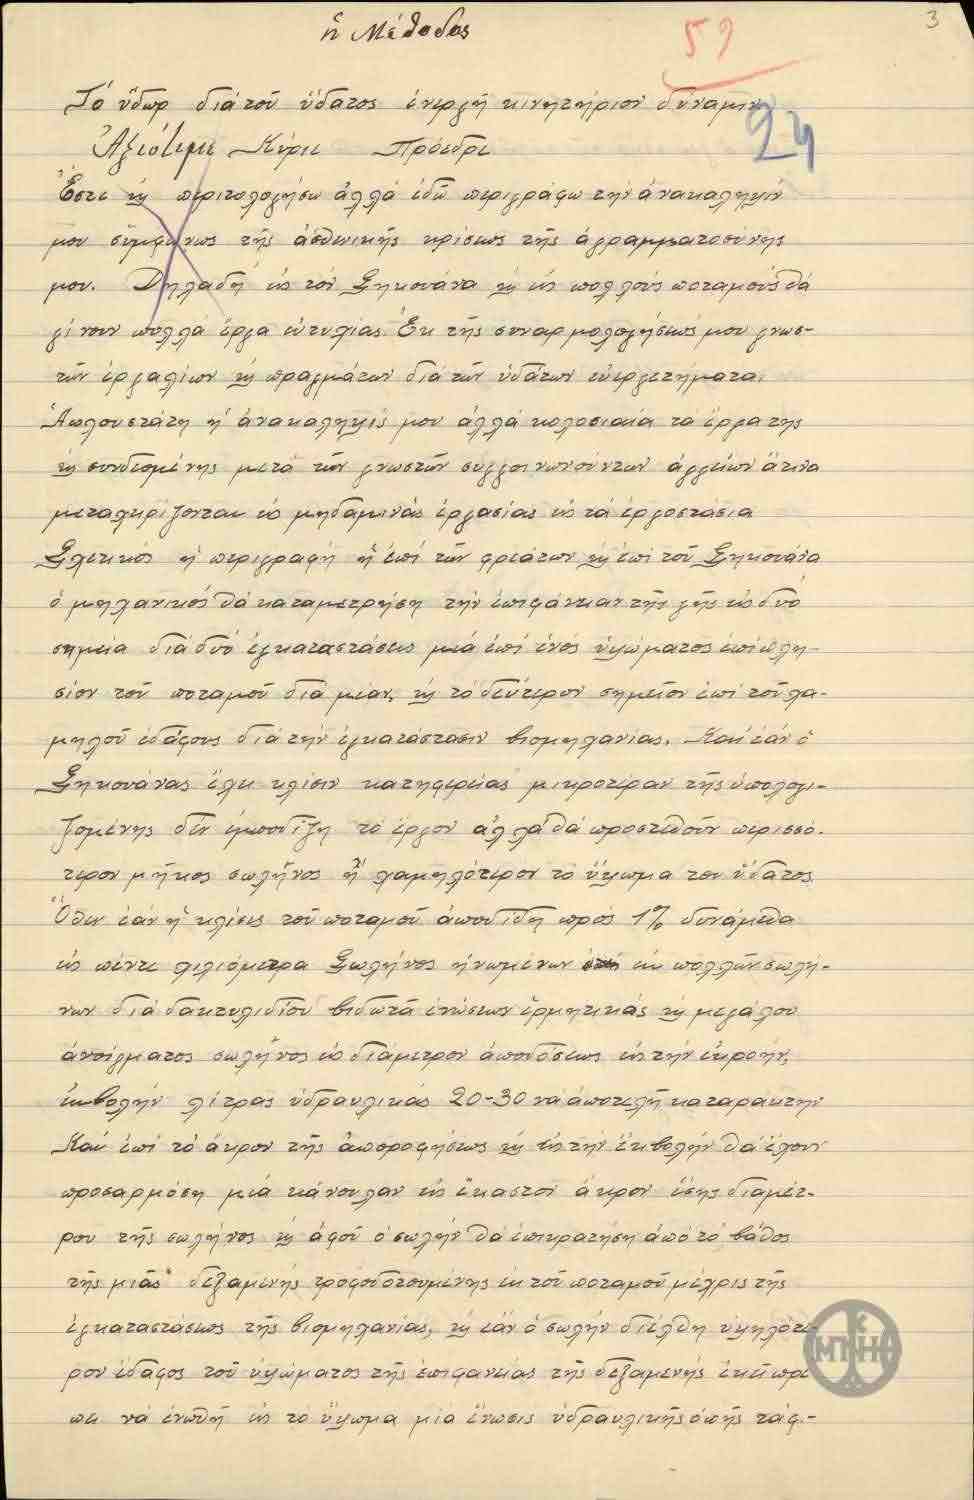 3
ἡ Μέθοδος
59
24
Τό ὕδωρ διά τοῦ ὕδατος ἐνεργῆ κινητήριον δύναμιν
Ἀξιότιμε Κύριε Πρόεδρε
Ἔστε ϗ περιτολογήσω ἀλλά ἐδῶ περιγράφω την ἀνακαληψίν
μου σύμφωνως τῆς ἀσθενικῆς κρίσεως τῆς ἀγραμματοσύνης
μου. Δηλαδή εἰς τόν Σηκουάνα ϗ εἰς πολλούς ποταμούς θά
γίνουν πολλά ἔργα εὐτυχίας. Ἐκ τῆς συναρμολογήσεως μου γνωσ-
τῶν ἐργαλίων ϗ πραγμάτων διά τῶν ὑδάτων εὐεργετήματα.
Ἁπλουστάτη ἡ ἀνακαληψίς μου ἀλλά κολοσιαία τα ἔργα της
ϗ συνδεομένης μετά τῶν γνωστῶν συγγοινωνούντων ἀγγείων ἅτινα
μεταχιρίζονται εἰς μηδαμινάς ἐργασίας εἰς τά ἐργοστάσια
Σχετικός ἡ περιγραφή ἤ ἐπί τῶν φρεάτων ϗ ἐπί τοῦ Σηκουάνα
ὁ μηχανικός θά καταμετρήση την ἐπιφάνειαν τῆς γῆς εἰς δυό
σημεία διά δυό ἐγκαταστάσεις μιά ἐπί ἑνός ὑψώματος ἐπί πλη-
σίον τοῦ ποταμοῦ διά μίαν, ϗ τό δεύτερον σημεῖον ἐπί τοῦ χα-
μηλοῦ ἐδάφους διά την ἐγκατάστασιν βιομηχανίας. Και ἐάν ὁ
Σηκουάνας ἔχει κλίσιν κατηφερείας μικροτέραν τῆς ὑπολογι-
ζομένης δέν ἐμποδίζη τό ἔργον ἀλλά θά προστεθοῦν περισσό-
τερον μῆκος σωλῆνος ἤ χαμηλότερον τό ὕψωμα του ὕδατος.
Ὅθεν ἐάν ἡ κλίσις τοῦ ποταμοῦ ἀποδίδη πρός 1% δυνάμεθα
εἰς πέντε χιλιόμετρα Σωλήνος ἡνωμένων ἐκ πολλῶν σωλή-
νων διά δακτυλιδίου βιδωτά ἑνώσεων ἑρμητικάς ϗ μεγάλου
ἀνοίγματος σωλῆνος εἰς διάμετρον ἀποδόσεως εἰς την ἐκροήν,
ἐκβολήν λίτρας ὑδραυλικάς 20-30 νά ἀποτελῆ καταρακτην
Και ἐπί τό ἄκρον τῆς ἀπορροφήσεως ϗ εἰς τήν ἐκβολήν θά ἔχουν
προσαρμόση μιά κάνουλαν εἰς ἕκαστοι ἄκρον ἴσης διαμέτ-
ρου τῆς σωλήνος ϗ ἀφοῦ ὁ σωλήν θά ἐπικρατήση ἀπό τό βάθος
τῆς μιᾶς δεξαμενής τροφοδοτουμένης ἐκ τοῦ ποταμοῦ μέχρις τῆς
ἐγκαταστάσεως τῆς βιομηχανίας, ϗ ἐάν ὁ σωλήν διέλθη ὑψηλότε-
ρον ἐδάφος τοῦ ὑψώματος τῆς ἐπιφανείας τῆς δεξαμενής ἐκεῖ πρέ
πει νά ἑνωθῆ εἰς τό ὕψωμα μία ἕνωσις ὑδραυλικῆς ὀπῆς τάφ.-
ΜΠΗΚ